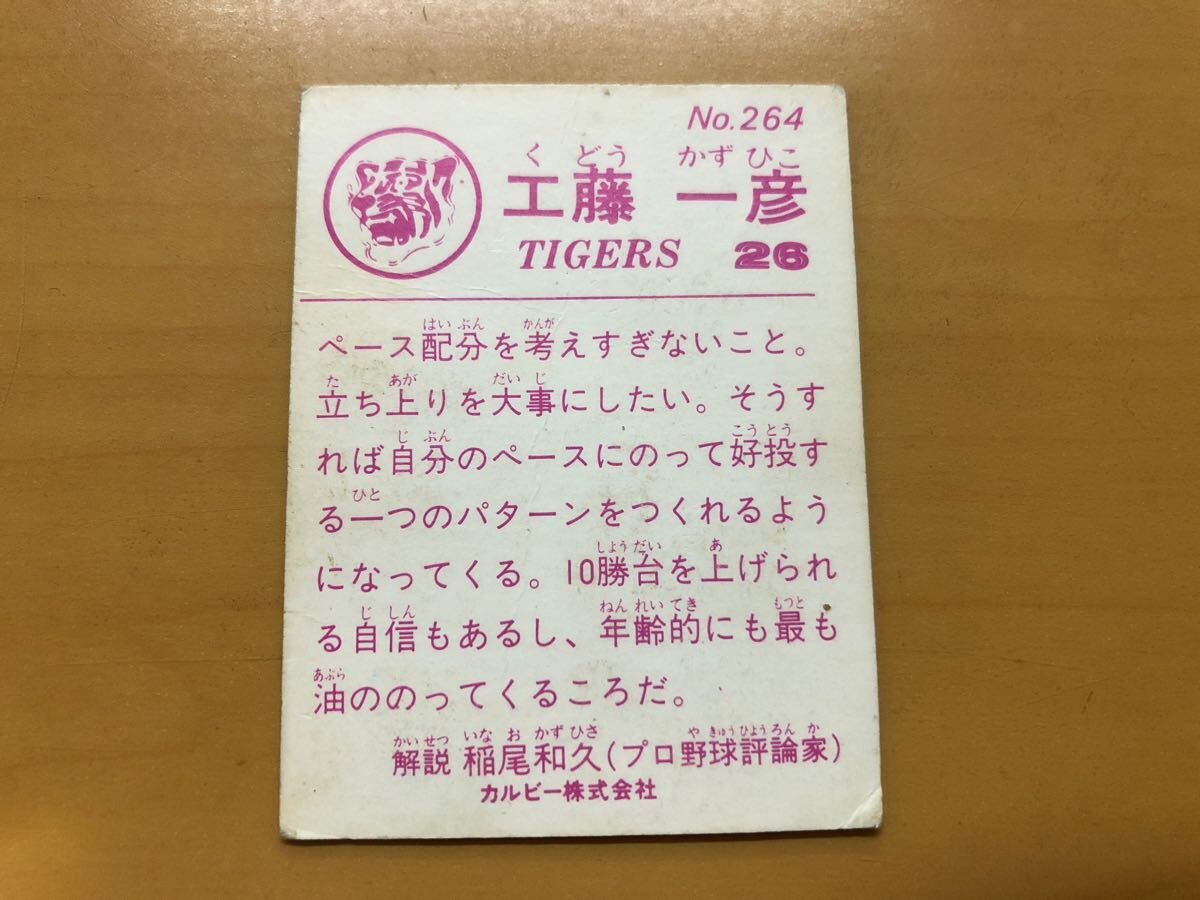 No.264
くどう かずひこ
工藤 一彦
TIGERS 26
はいぶん かんが
ペース配分を考えすぎないこと。
た あが だいじ
立ち上りを大事にしたい。そうす
じぶん こうとう
れば自分のペースにのって好投す
ひと
る一つのパターンをつくれるよう
しょうだい あ
になってくる。10勝台を上げられ
じしん ねんれいてき もっと
る自信もあるし、年齢的にも最も
あぶら
油ののってくるころだ。
かいせつ いなおかずひさ やきゅうひょうろんか
解説 稲尾和久(プロ野球評論家)
カルビー株式会社